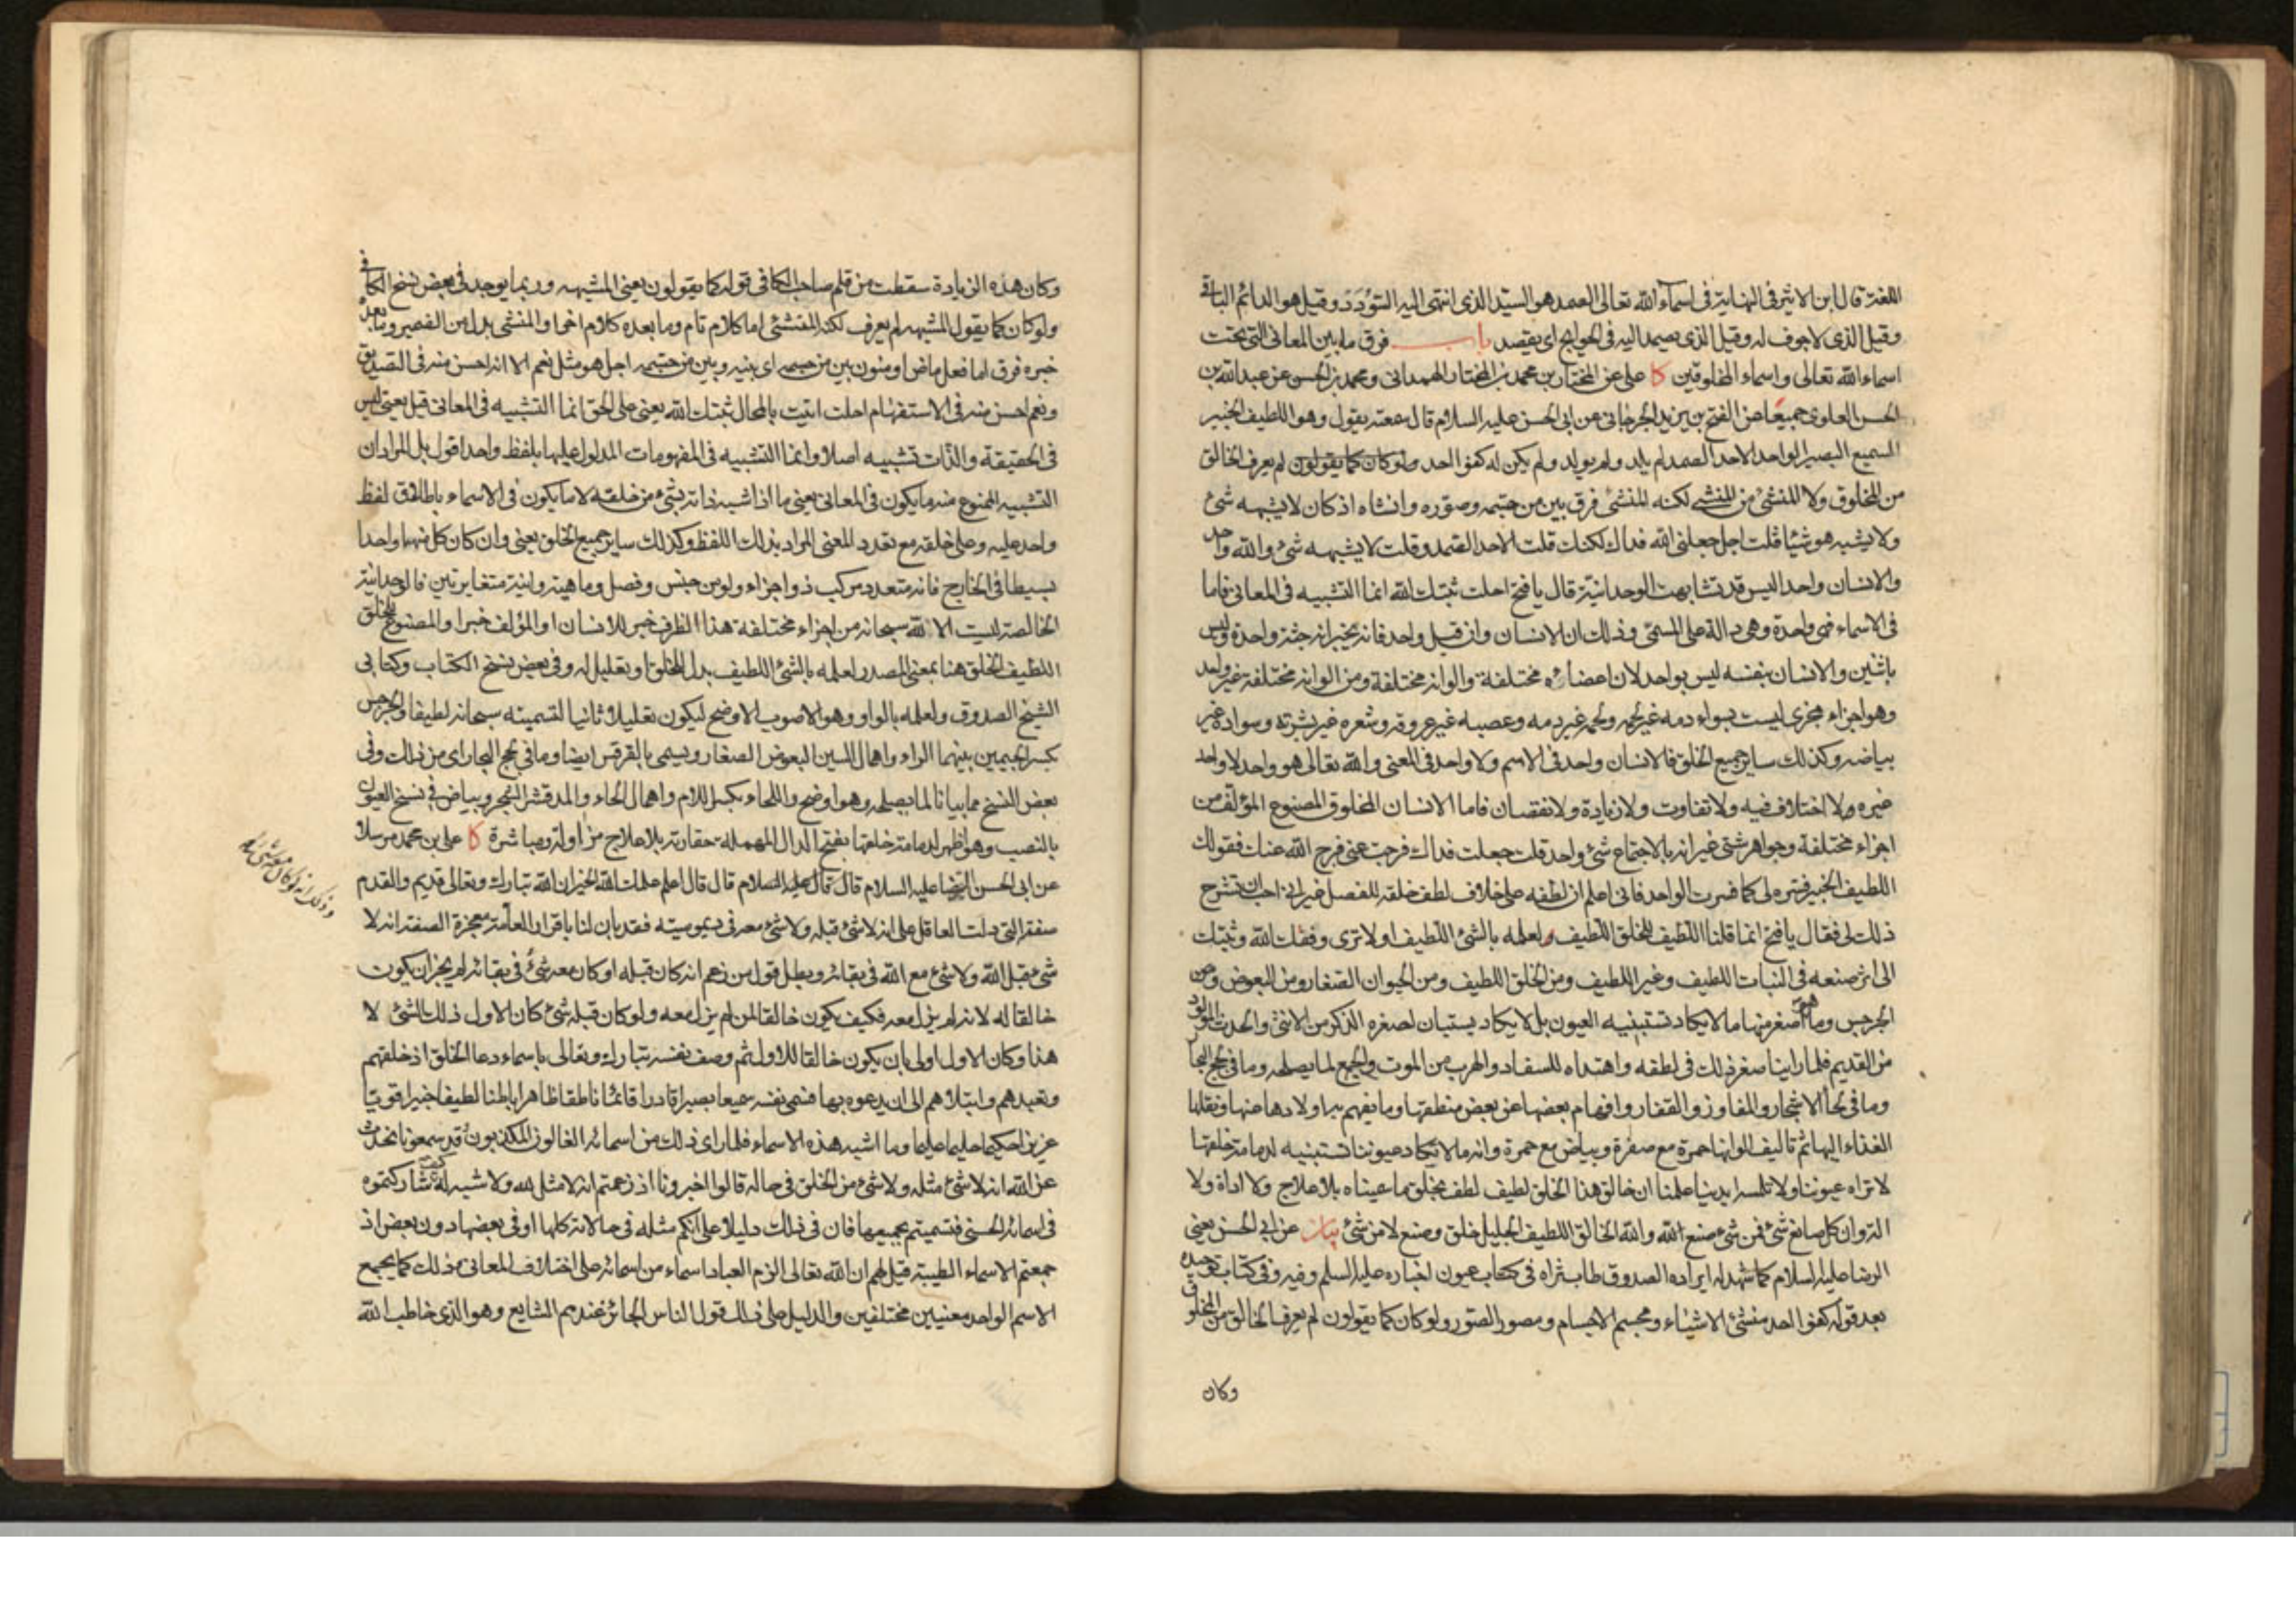 اللغة قال ابن الاثير فى النهاية فى اسماء الله تعالى الصمد هو السيد الذى انتهى اليه السؤدد وقيل هو الدائم الباقى
وقيل الذى لا جوف له وقيل الذى يصمد اليه فى الحوايج اى يقصد باب فرق ما بين المعانى التى تحت
اسماء الله تعالى واسماء المخلوقين كا على عن المختار بن محمد بن المختار الهمدانى ومحمد بن الحسن عن عبد الله بن
الحسن العلوى جميعا عن الفتح بن يزيد الجرجانى عن ابى الحسن عليه السلام قال سمعته يقول وهو اللطيف الخبير
السميع البصير الواحد الاحد الصمد لم يلد ولم يولد ولم يكن له كفوا احد ولو كان كما يقولون لم يعرف الخالق
من المخلوق ولا المنشئ من المنشا لكنه المنشئ فرق بين من جسمه وصوره وانشاه اذ كان لا يشبهه شئ
ولا يشبه هو شيئا قلت اجل جعلنى الله فداك لكنك قلت الاحد الصمد وقلت لا يشبهه شئ والله واحد
والانسان واحد اليس قد تشابهت الوحدانية قال يا فتح احلت ثبتك الله انما التشبيه فى المعانى فاما
فى الاسماء فهى واحدة وهى دالة على المسمى وذلك ان الانسان وان قيل واحد فانه يخبر انه جثة واحدة وليس
باثنين والانسان بنفسه ليس بواحد لان اعضاءه مختلفة والوانه مختلفة ومن الوانه مختلفة غير واحد
وهو اجزاء مجزى ليست بسواء دمه غير لحمه ولحمه غير دمه وعصبه غير عروقه وشعره غير بشرته وسواده غير
بياضه وكذلك ساير جميع الخلق فالانسان واحد فى الاسم ولا واحد فى المعنى والله تعالى هو واحد لا واحد
غيره ولا اختلاف فيه ولا تفاوت ولا زيادة ولا نقصان فاما الانسان المخلوق المصنوع المؤلف من
اجزاء مختلفة وجواهر شتى غير انه بالاجتماع شئ واحد قلت جعلت فداك فرجت عنى فرج الله عنك فقولك
اللطيف الخبير فسره لى كما فسرت الواحد فانى اعلم ان لطفه على خلاف لطف خلقه للفصل غير انى احب ان تشرح
ذلك لى فقال يا فتح انما قلنا اللطيف للخلق اللطيف ولعلمه بالشئ اللطيف اولا ترى وفقك الله وثبتك
الى اثر صنعه فى النبات اللطيف وغير اللطيف ومن الخلق اللطيف ومن الحيوان الصغار ومن البعوض ومن
الجرجس وما هو اصغر منها ما لا يكاد تستبنيه العيون بل لا يكاد يستبان لصغره الذكر من الانثى والحدث المولود
من القديم فلما راينا صغر ذلك فى لطفه واهتداه للسفاد والهرب من الموت والجمع لما يصلحه وما فى لجج البحار
وما فى لحاء الاشجار والمفاوز والقفار وافهام بعضها عن بعض منطقها وما يفهم به اولادها عنها ونقلها
الغذاء اليها ثم تاليف الوانها حمرة مع صفرة وبياض مع حمرة وانه ما لا تكاد عيوننا تستبنيه لدمامة خلقها
لا تراه عيوننا ولا تلمسه ايدينا علمنا ان خالق هذا الخلق لطيف لطف بخلق ما سميناه بلا علاج ولا اداة ولا
الة وان كل صانع شئ فمن شئ صنع الله والله الخالق اللطيف الجليل خلق وصنع لا من شئ بيان عن ابى الحسن يعنى
الرضا عليه السلام كما شهد له ايراده الصدوق طاب ثراه فى كتاب عيون اخباره عليه السلم وفيه وفى كتاب توحيده
بعد قوله كفوا احد منشئ الاشياء ومجسم الاجسام ومصور الصور ولو كان كما يقولون لم يعرف الخالق من المخلوق
وكان
وكان هذه الزيادة سقطت من قلم صاحب الكافى قوله كما يقولون يعنى المشبهه وربما يوجد فى بعض نسخ الكافى
ولو كان كما يقول المشبهه لم يعرف لكنه المنشئ اما كلام تام وما بعده كلام اخر او المنشى بدل من الضمير وما بعده
خبره فرق اما فعل ماض او منون بين من جسمه اى بينه وبين من جسمه اجل هو مثل نعم الا انه احسن منه فى التصديق
ونعم احسن منه فى الاستفهام احلت اتيت بالمحال ثبتك الله يعنى على الحق انما التشبيه فى المعانى قيل يعنى ليس
فى الحقيقة والذات تشبيه اصلا وانما التشبيه فى المفهومات المدلول عليها بلفظ واحد اقول بل المراد ان
التشبيه الممنوع منه ما يكون فى المعانى يعنى ما اذا شبه ذاته بشئ من خلقه لا ما يكون فى الاسماء باطلاق لفظ
واحد عليه وعلى خلقه مع تعدد المعنى المراد بذلك اللفظ وكذلك ساير جميع الخلق يعنى وان كان كل منها واحدا
بسيطا فى الخارج فانه متعدد مركب ذو اجزاء ولو من جنس وفصل وماهية وانية متغايرتين فالوحدانية
الخالصة ليست الا لله سبحانه من اجزاء مختلفة هذا الظرف خبر للانسان او المؤلف خبر او المصنوع للخلق
اللطيف الخلق هنا بمعنى المصدر لعلمه بالشئ اللطيف بدل للخلق او تعليل له وفى بعض نسخ الكتاب وكتابى
الشيخ الصدوق ولعلمه بالواو وهو الاصوب الاوضح ليكون تعليلا ثانيا لتسميته سبحانه لطيفا والجرجس
بكسر الجيمين بينهما الراء واهمال السين البعوض الصغار ويسمى بالقرقس ايضا وما فى لجج البحار اى من ذلك وفى
بعض النسخ مما بيانا لما يصلحه وهو اوضح واللحاء بكسر اللام واهمال الحاء والمد قشر الشجر وبياض فى نسخ العيون
بالنصب وهو اظهر لدمامة خلقها بفتح الدال المهملة حقارته بلا علاج مزاولة ومباشرة كا على بن محمد مرسلا
عن ابى الحسن الرضا عليه السلام قال قال عليه السلام قال قال اعلم علمك الله الخير ان الله تبارك وتعالى قديم والقدم
صفته التى دلت العاقل على انه لا شئ قبله ولا شئ معه فى ديموميته فقد بان لنا باقرار العامة معجزة الصفة انه لا
شئ قبل الله ولا شئ مع الله فى بقائه وبطل قول من زعم انه كان قبله او كان معه شئ فى بقائه لم يجز ان يكون
خالقا له لانه لم يزل معه فكيف يكون خالقا لمن لم يزل معه ولو كان قبله شئ كان الاول ذلك الشئ لا
هذا وكان الاول اولى بان يكون خالقا للاول ثم وصف نفسه تبارك وتعالى باسماء دعا الخلق اذ خلقهم
وتعبدهم وابتلاهم الى ان يدعوه بها فسمى نفسه سميعا بصيرا قادرا قائما ناطقا ظاهرا باطنا لطيفا خبيرا قويا
عزيزا حكيما حليما عليما وما اشبه هذه الاسماء فلما راى ذلك من اسمائه الغالون المكذبون وقد سمعونا نحدث
عن الله انه لا شئ مثله ولا شئ من الخلق فى حاله قالوا اخبرونا اذ زعمتم انه لا مثل لله ولا شبه له كيف شاركتموه
فى اسمائه الحسنى فتسميتم بجميعها فان فى ذلك دليلا على انكم مثله فى حالاته كلها او فى بعضها دون بعض اذ
جمعتم الاسماء الطيبة قيل لهم ان الله تعالى الزم العباد اسماء من اسمائه على اختلاف المعانى وذلك كما يجمع
الاسم الواحد معنيين مختلفين والدليل على ذلك قول الناس الجائز عندهم الشايع وهو الذى خاطب الله
وذلك انه لو كان معه شئ